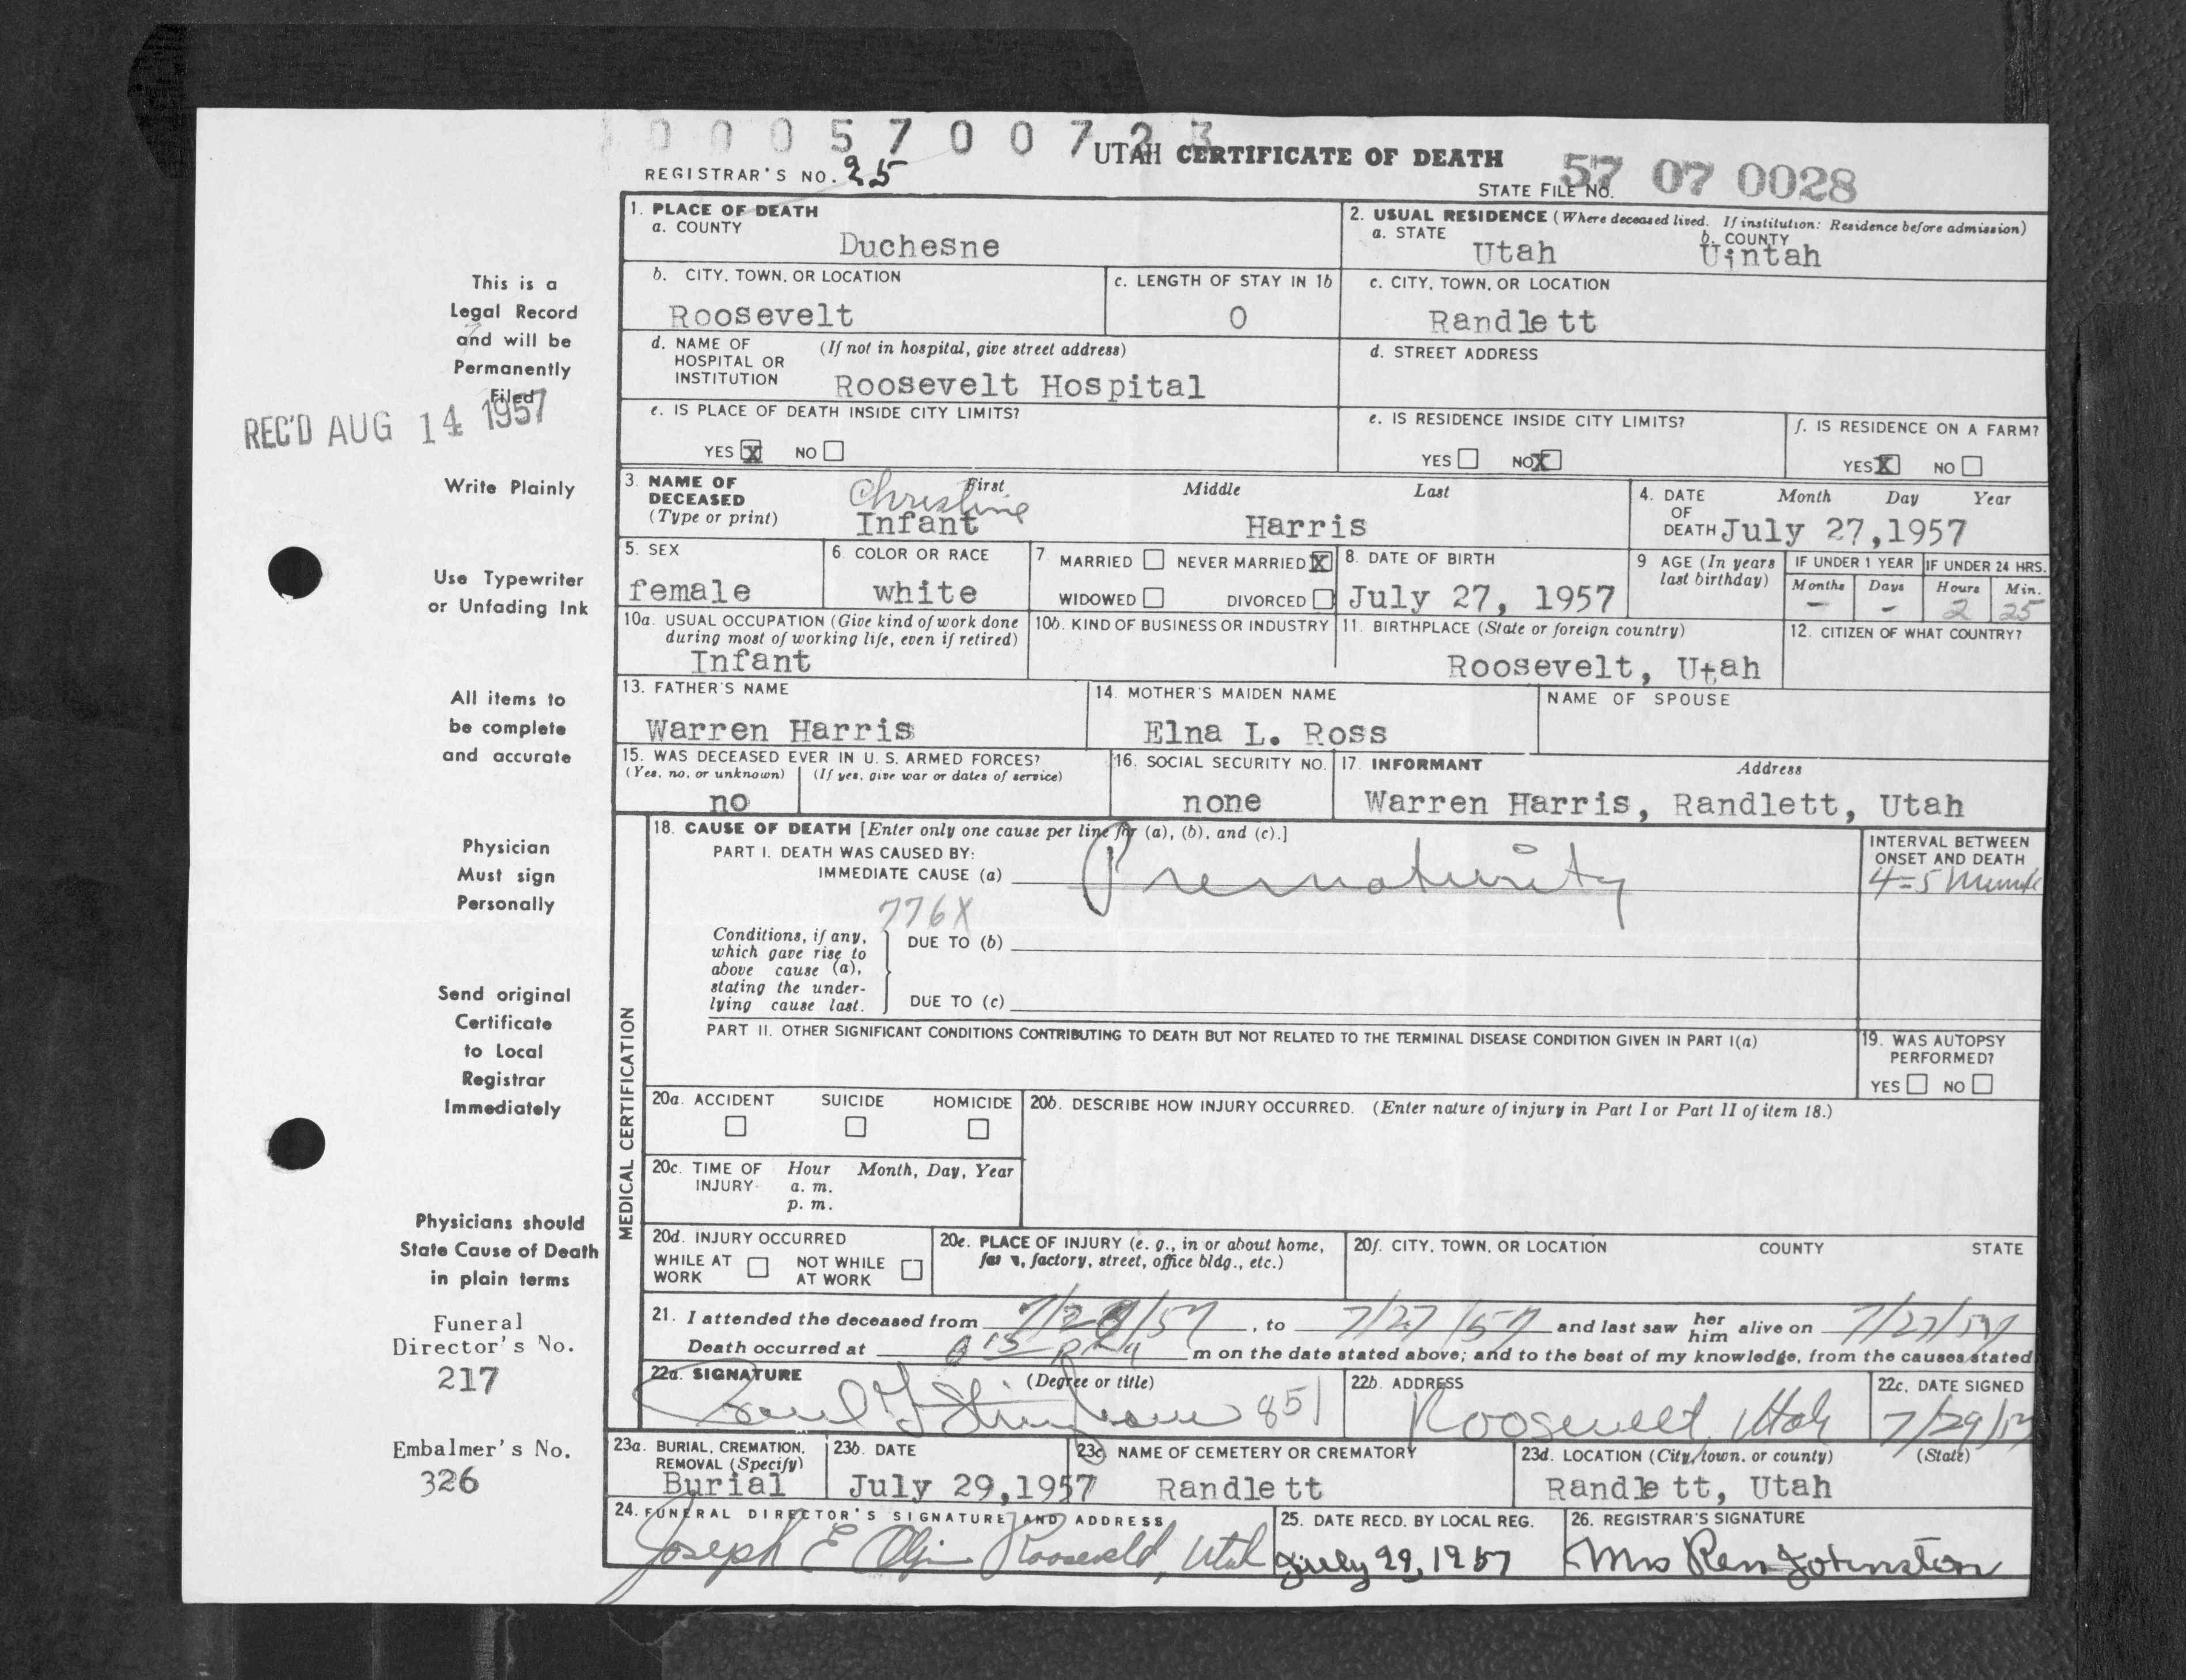 0 0 0 5 7 0 0 7 2 3
UTAH CERTIFICATE OF DEATH
REGISTRAR'S NO. 25
STATE FILE NO. 57 07 0028
1. PLACE OF DEATH
a. COUNTY
Duchesne
2. USUAL RESIDENCE (Where deceased lived. If institution: Residence before admission)
a. STATE
Utah
b. COUNTY
Uintah
b. CITY, TOWN, OR LOCATION
Roosevelt
c. LENGTH OF STAY IN 1b
0
c. CITY, TOWN, OR LOCATION
Randlett
d. NAME OF HOSPITAL OR INSTITUTION
(If not in hospital, give street address)
Roosevelt Hospital
d. STREET ADDRESS
e. IS PLACE OF DEATH INSIDE CITY LIMITS?
YES X NO
e. IS RESIDENCE INSIDE CITY LIMITS?
YES NO X
f. IS RESIDENCE ON A FARM?
YES X NO
3. NAME OF DECEASED
(Type or print)
First Middle Last
Christine
Infant Harris
4. DATE OF DEATH
Month Day Year
July 27,1957
5. SEX
female
6. COLOR OR RACE
white
7. MARRIED NEVER MARRIED X
WIDOWED DIVORCED
8. DATE OF BIRTH
July 27, 1957
9 AGE (In years last birthday)
IF UNDER 1 YEAR
Months Days
- -
IF UNDER 24 HRS.
Hours Min.
2 25
10a. USUAL OCCUPATION (Give kind of work done during most of working life, even if retired)
Infant
10b. KIND OF BUSINESS OR INDUSTRY
11. BIRTHPLACE (State or foreign country)
Roosevelt, Utah
12. CITIZEN OF WHAT COUNTRY?
13. FATHER'S NAME
Warren Harris
14. MOTHER'S MAIDEN NAME
Elna L. Ross
NAME OF SPOUSE
15. WAS DECEASED EVER IN U. S. ARMED FORCES?
(Yes, no, or unknown) (If yes, give war or dates of service)
no
16. SOCIAL SECURITY NO.
none
17. INFORMANT Address
Warren Harris, Randlett, Utah
MEDICAL CERTIFICATION
18. CAUSE OF DEATH [Enter only one cause per line for (a), (b), and (c).]
PART I. DEATH WAS CAUSED BY:
IMMEDIATE CAUSE (a) Prematurity
INTERVAL BETWEEN ONSET AND DEATH
776X
Conditions, if any, which gave rise to above cause (a), stating the underlying cause last.
DUE TO (b)
DUE TO (c)
PART II. OTHER SIGNIFICANT CONDITIONS CONTRIBUTING TO DEATH BUT NOT RELATED TO THE TERMINAL DISEASE CONDITION GIVEN IN PART I(a)
19. WAS AUTOPSY PERFORMED?
YES NO
20a. ACCIDENT SUICIDE HOMICIDE
20b. DESCRIBE HOW INJURY OCCURRED. (Enter nature of injury in Part I or Part II of item 18.)
20c. TIME OF INJURY
Hour Month, Day, Year
a. m.
p. m.
20d. INJURY OCCURRED
WHILE AT WORK NOT WHILE AT WORK
20e. PLACE OF INJURY (e. g., in or about home, farm, factory, street, office bldg., etc.)
20f. CITY, TOWN, OR LOCATION COUNTY STATE
21. I attended the deceased from , to 7/27/57 and last saw her him alive on 7/27/57
Death occurred at m on the date stated above; and to the best of my knowledge, from the causes stated
22a. SIGNATURE (Degree or title)
851
22b. ADDRESS
Roosevelt, Utah
22c. DATE SIGNED
7/29/57
23a. BURIAL, CREMATION, REMOVAL (Specify)
Burial
23b. DATE
July 29,1957
23c. NAME OF CEMETERY OR CREMATORY
Randlett
23d. LOCATION (City, town, or county) (State)
Randlett, Utah
24. FUNERAL DIRECTOR'S SIGNATURE AND ADDRESS
Joseph E Roosevelt, Utah
25. DATE RECD. BY LOCAL REG.
July 29, 1957
26. REGISTRAR'S SIGNATURE
Mrs Ren Johnston
This is a
Legal Record
and will be
Permanently
Filed
REC'D AUG 14 1957
Write Plainly
Use Typewriter
or Unfading Ink
All items to
be complete
and accurate
Physician
Must sign
Personally
Send original
Certificate
to Local
Registrar
Immediately
Physicians should
State Cause of Death
in plain terms
Funeral
Director's No.
217
Embalmer's No.
326